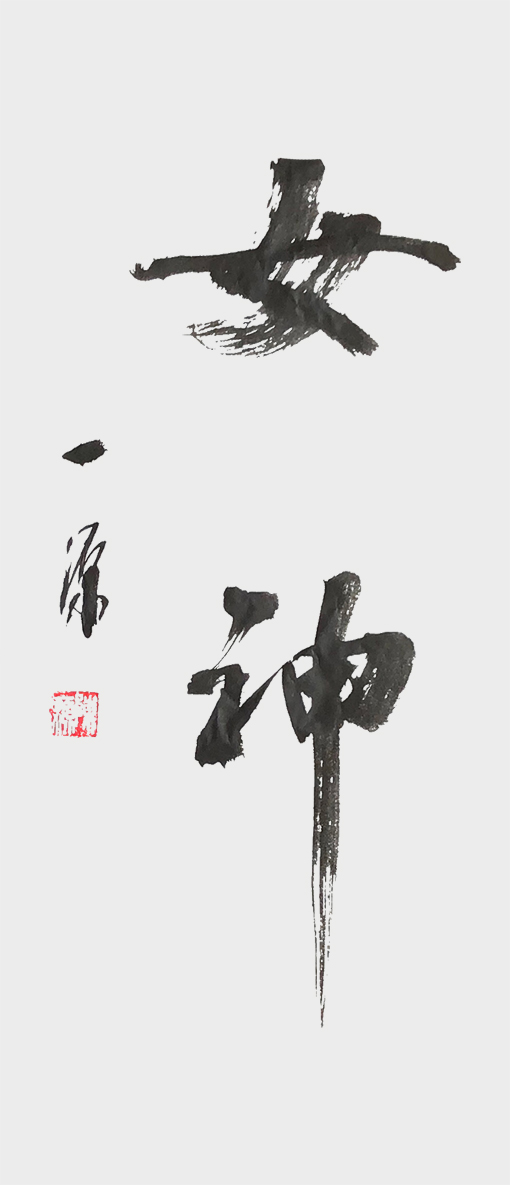 女神
一源